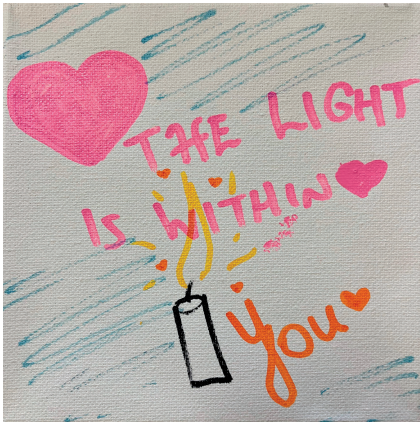 THE LIGHT
IS WITHIN
you